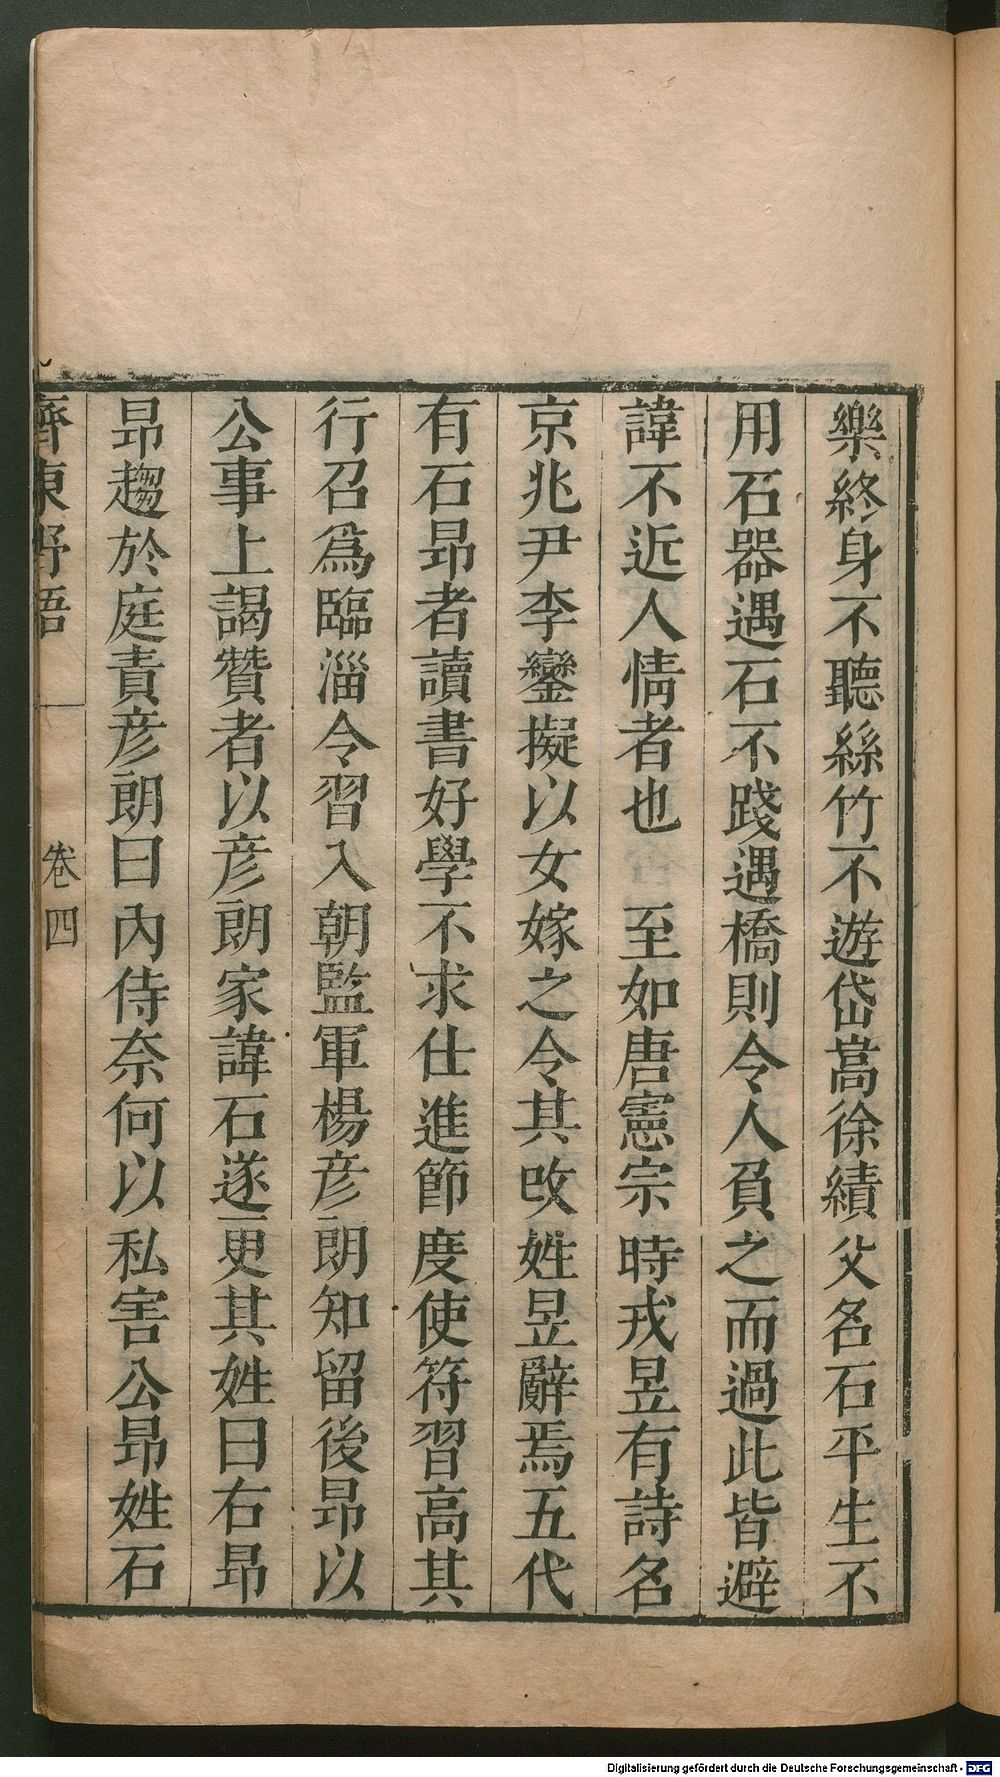 樂終身不聽絲竹不遊岱嵩徐績父名石平生不
用石器遇石不踐遇橋則令人負之而過此皆避
諱不近人情者也　至如唐憲宗時戎昱有詩名
京兆尹李鑾擬以女嫁之令其改姓昱辭焉五代
有石昂者讀書好學不求仕進節度使符習高其
行召爲臨淄令習入朝監軍楊彦朗知留後昂以
公事上謁贊者以彦朗家諱石遂更其姓曰右昂
昂趨於庭責彦朗曰內侍奈何以私害公昂姓石
齊東野語　卷四
Digitalisierung gefördert durch die Deutsche Forschungsgemeinschaft - DFG